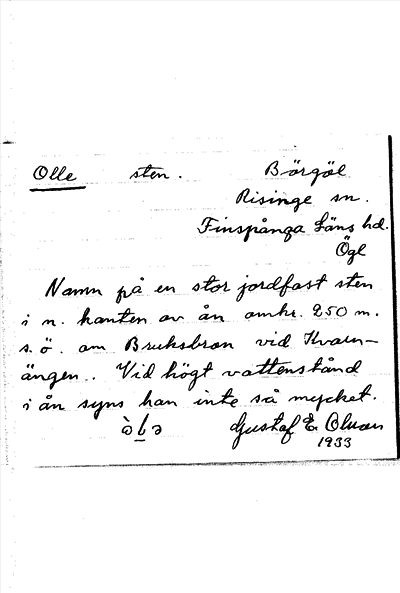 Olle sten. Börgöl
Risinge sn.
Finspånga Läns hd.
Ögl
Namn på en stor jordfast sten
i n. kanten av ån omkr. 250 m.
s.ö. om Bruksbron vid Kvarn-
ängen.. Vid högt vattenstånd
i ån syns han inte så mycket.
Gustaf E.
1933